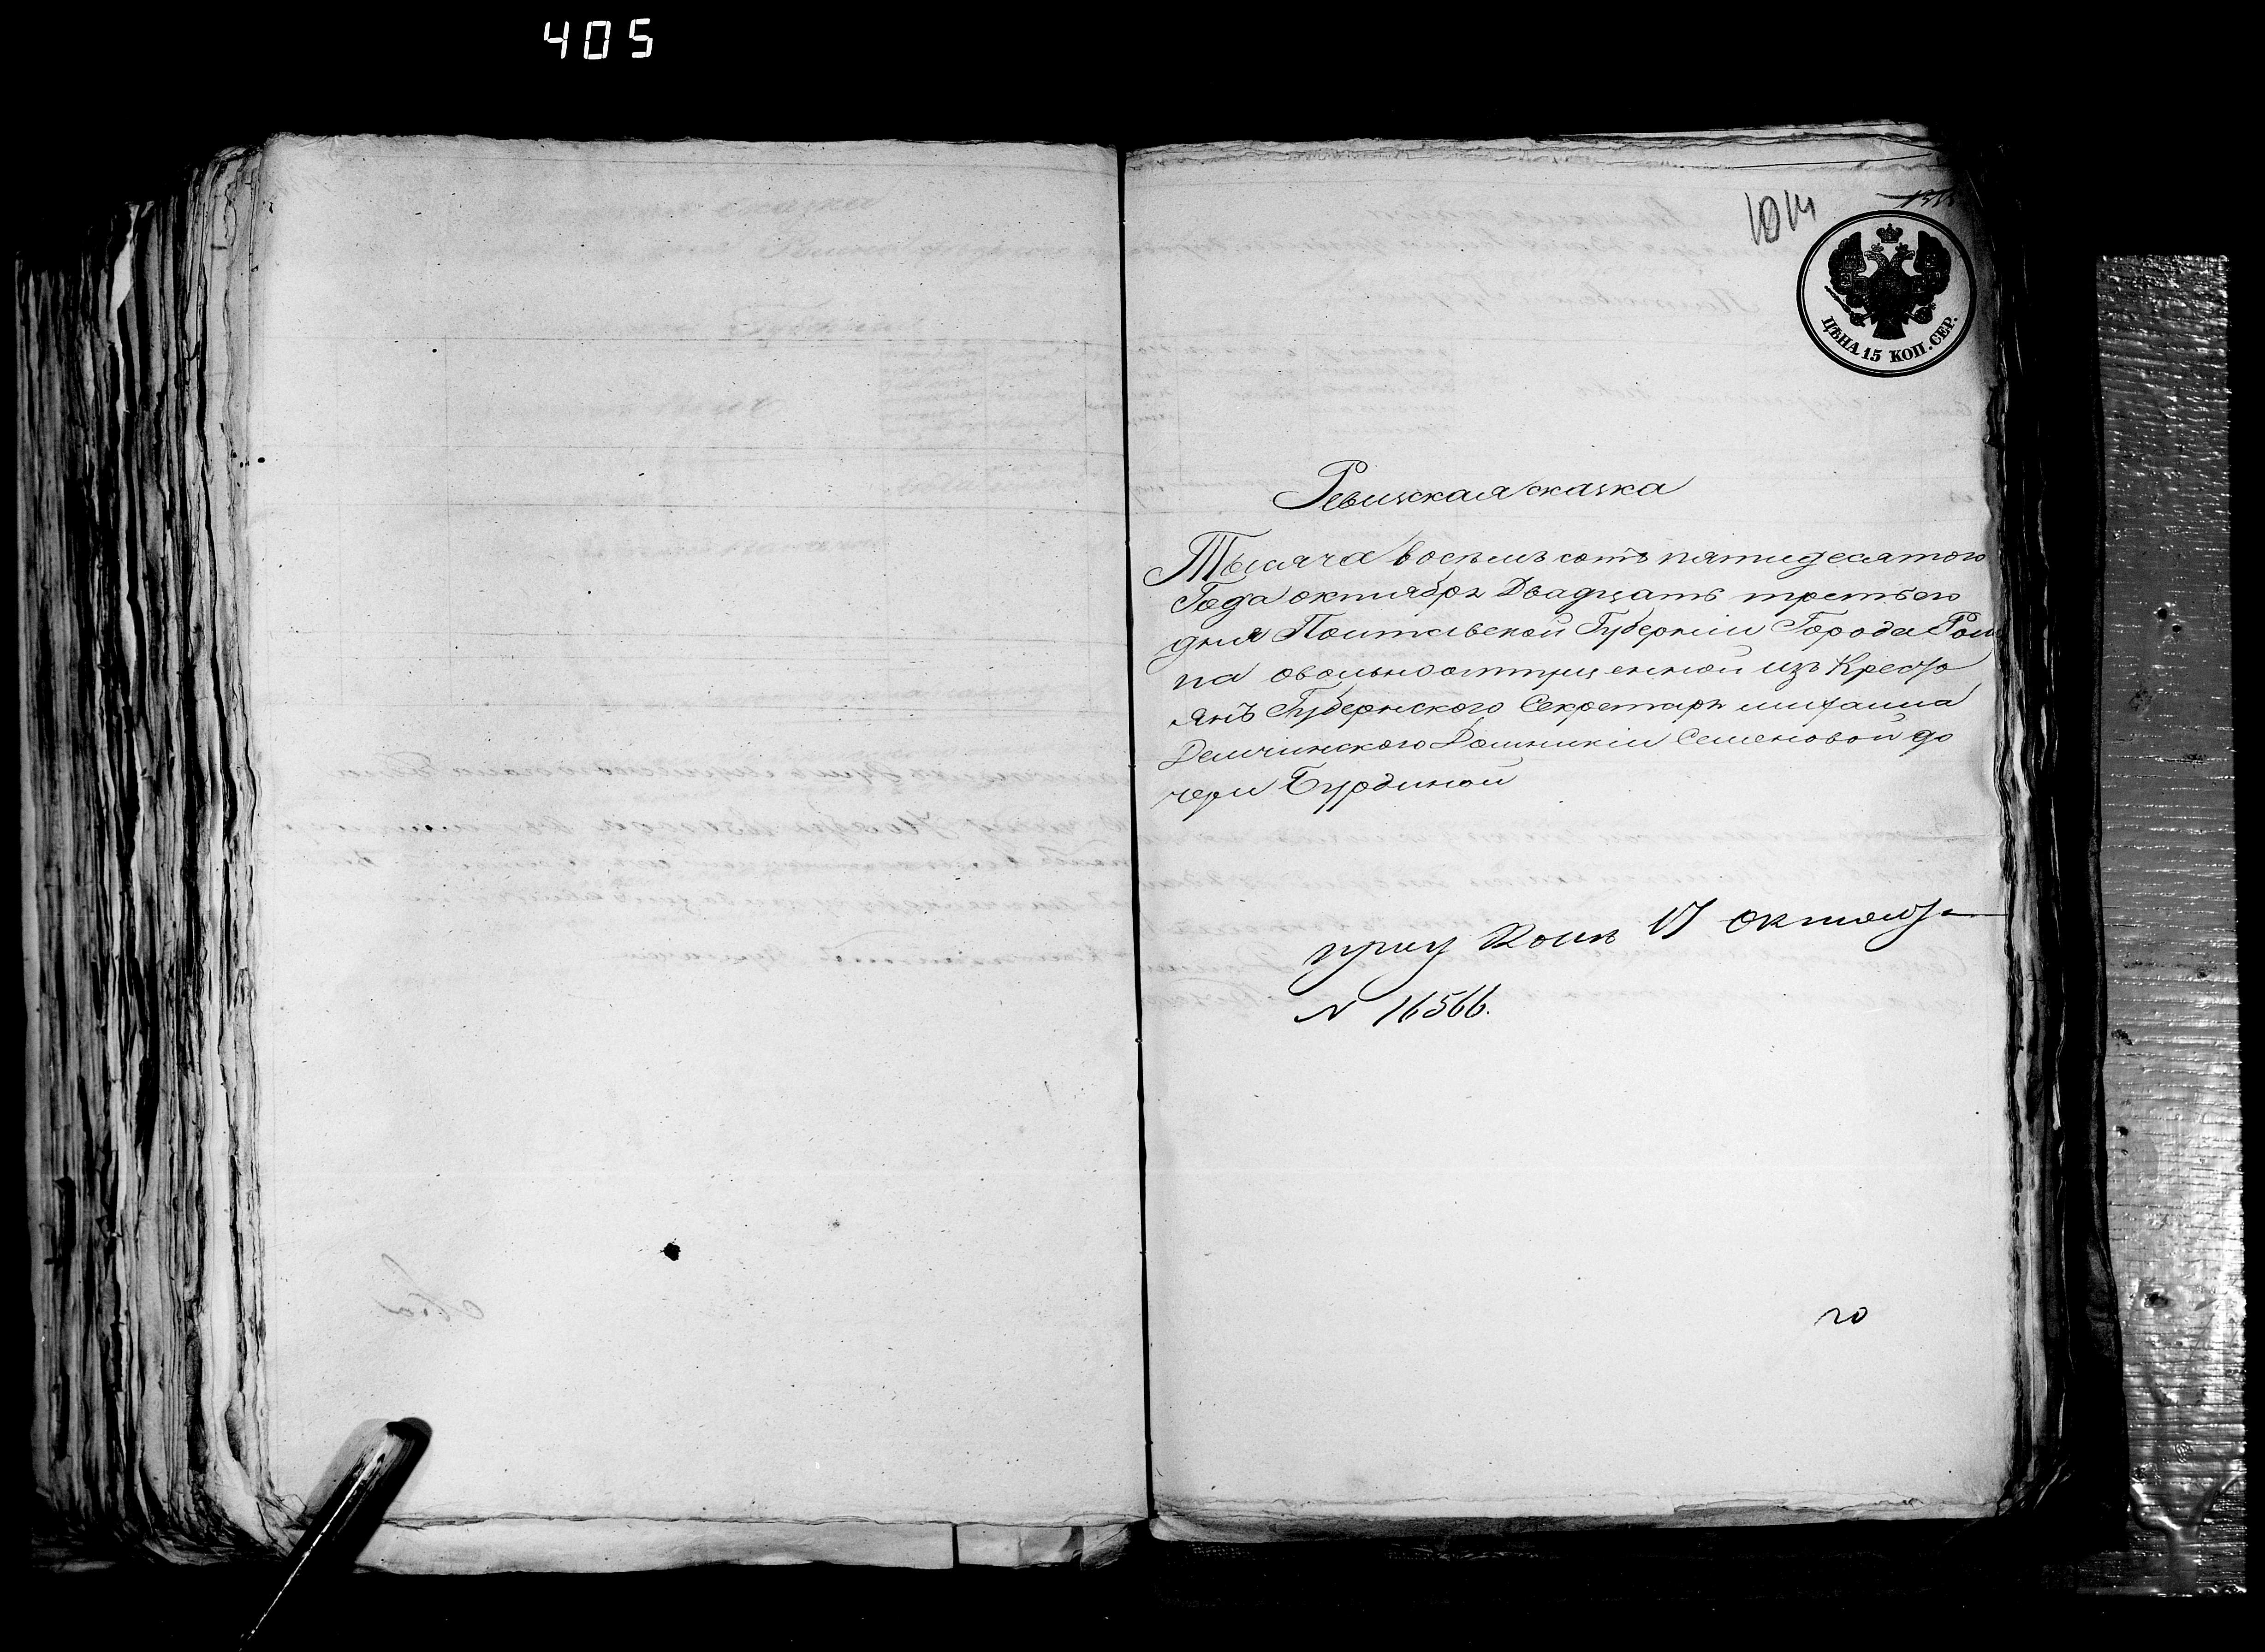 405
1014
ЦѢНА 15 КОП. СЕР.
Ревизская сказка
Тысяча восемь сотъ пятидесятого
Года октября Двадцать третьего
дня Полтавской Губерніи Города Ром
на овольноотпущенной изъ Кресть
янъ Губернского Секретаря михаила
Демчинского Домникіи Семеновой до
чери Бурдиной
17 октября
N 16566.
20